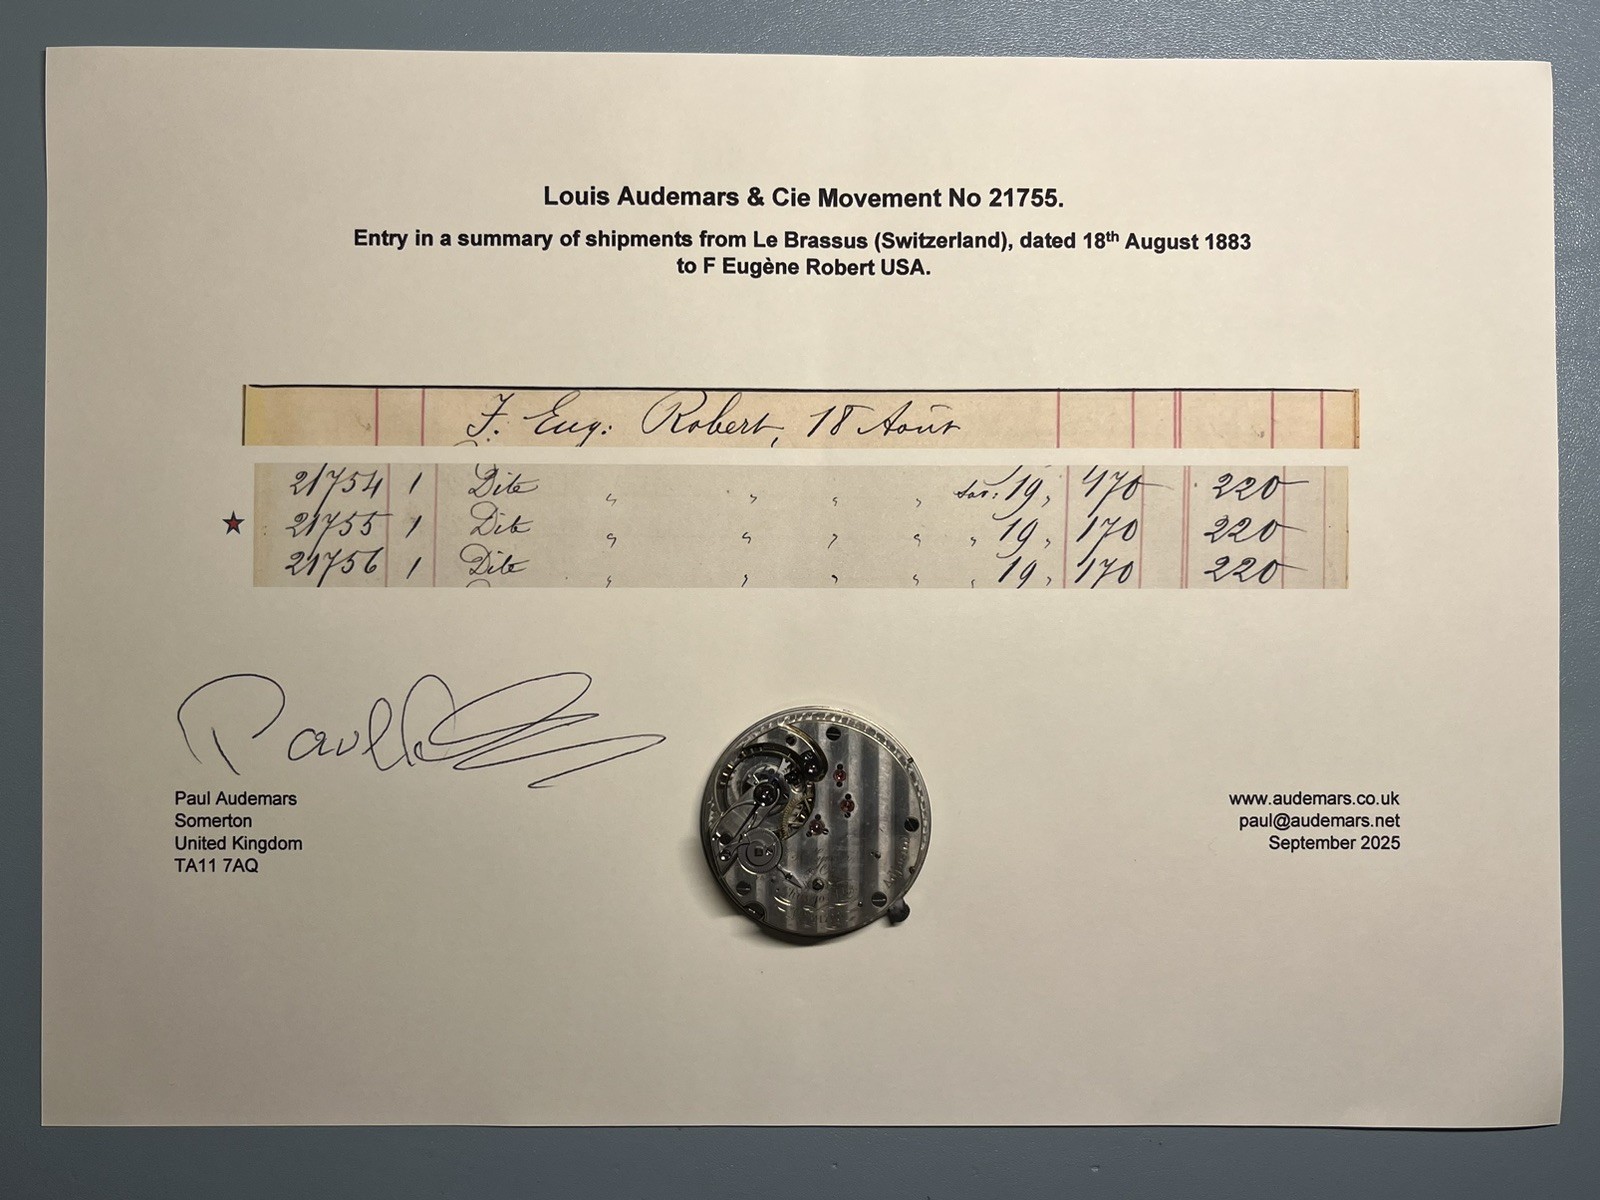 Louis Audemars & Cie Movement No 21755.
Entry in a summary of shipments from Le Brassus (Switzerland), dated 18th August 1883
to F Eugène Robert USA.
F. Eug: Robert, 18 Août
21754 1 Dite " " " " 19, 170 220
21755 1 Dite " " " " " 19, 170 220
21756 1 Dite " " " " " 19, 170 220
Paul
Paul Audemars
Somerton
United Kingdom
TA11 7AQ
www.audemars.co.uk
paul@audemars.net
September 2025